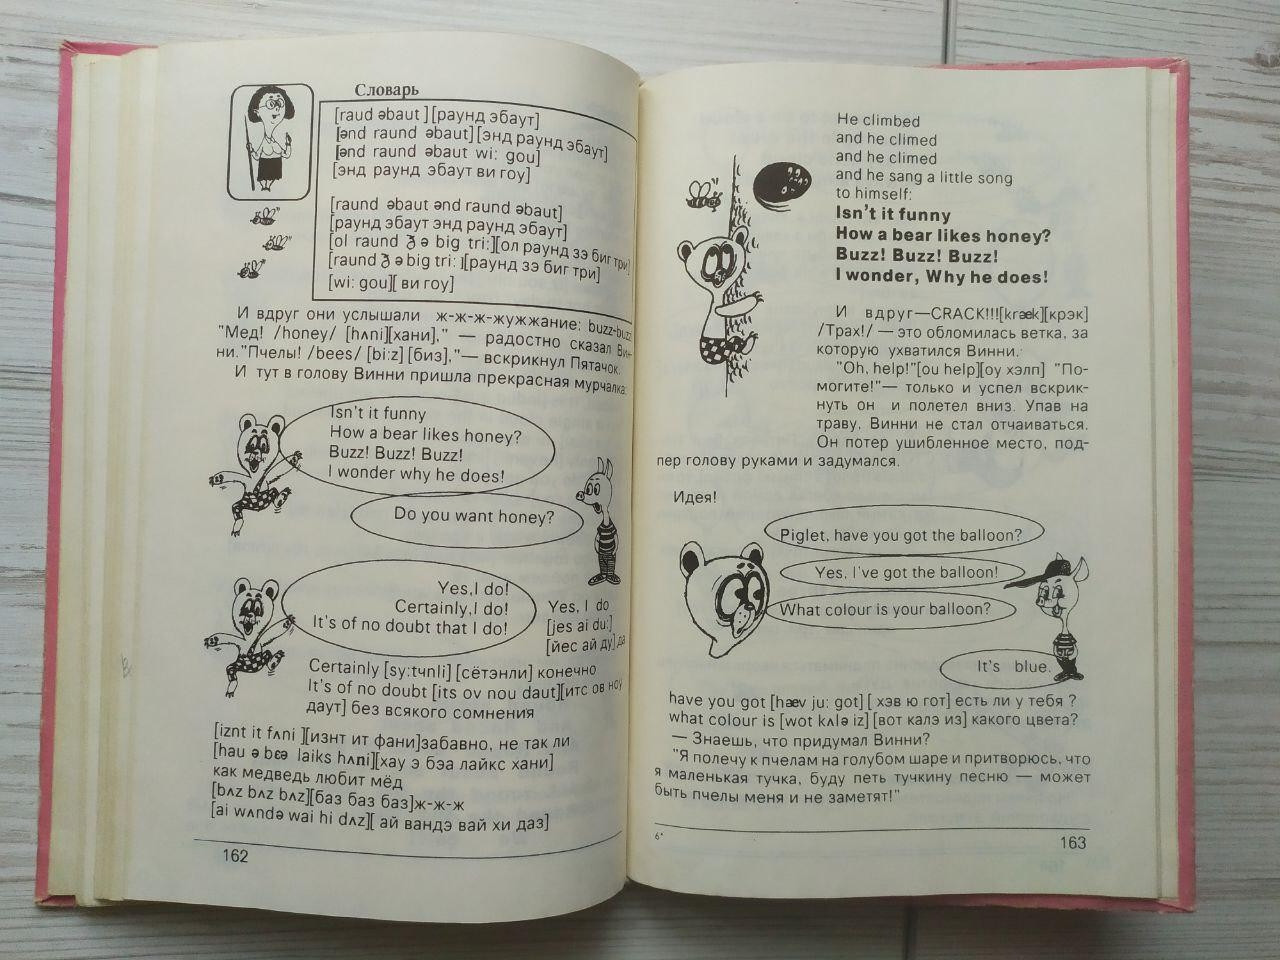 Словарь
[raud əbaut ][раунд эбаут]
[ənd raund əbaut][энд раунд эбаут]
[ənd raund əbaut wi: gou]
[энд раунд эбаут ви гоу]
[raund əbaut ənd raund əbaut]
[раунд эбаут энд раунд эбаут]
[ol raund ℨ ə big tri:][ол раунд зэ биг три]
[raund ℨ ə big tri: ][раунд зэ биг три]
[wi: gou][ ви гоу]
И вдруг они услышали ж-ж-ж-жужжание: buzz-buzz
"Мед! /honey/ [hʌni][хани]," — радостно сказал Вин-
ни."Пчелы! /bees/ [bi:z] [биз],"— вскрикнул Пятачок.
И тут в голову Винни пришла прекрасная мурчалка:
Isn't it funny
How a bear likes honey?
Buzz! Buzz! Buzz!
I wonder why he does!
Do you want honey?
Yes,I do!
Certainly,I do!
It's of no doubt that I do!
Yes, I do
[jes ai du:]
[йес ай ду] да
Certainly [sy:tчnli] [сётэнли] конечно
It's of no doubt [its ov nou daut][итс ов ноу
даут] без всякого сомнения
[iznt it fʌni ][изнт ит фани]забавно, не так ли
[hau ə bɛə laiks hʌni][хау э бэа лайкс хани]
как медведь любит мёд
[bʌz bʌz bʌz][баз баз баз]ж-ж-ж
[ai wʌndə wai hi dʌz][ ай вандэ вай хи даз]
162
He climbed
and he climed
and he climed
and he sang a little song
to himself:
Isn't it funny
How a bear likes honey?
Buzz! Buzz! Buzz!
I wonder, Why he does!
И вдруг—CRACK!!![kræk][крэк]
/Трах!/ — это обломилась ветка, за
которую ухватился Винни.
"Oh, help!"[ou help][оу хэлп] "По-
могите!"— только и успел вскрик-
нуть он и полетел вниз. Упав на
траву, Винни не стал отчаиваться.
Он потер ушибленное место, под-
пер голову руками и задумался.
Идея!
Piglet, have you got the balloon?
Yes, I've got the balloon!
What colour is your balloon?
It's blue.
have you got [hæv ju: got] [ хэв ю гот] есть ли у тебя ?
what colour is [wot kʌlə iz] [вот калэ из] какого цвета?
— Знаешь, что придумал Винни?
"Я полечу к пчелам на голубом шаре и притворюсь, что
я маленькая тучка, буду петь тучкину песню — может
быть пчелы меня и не заметят!"
6*
163